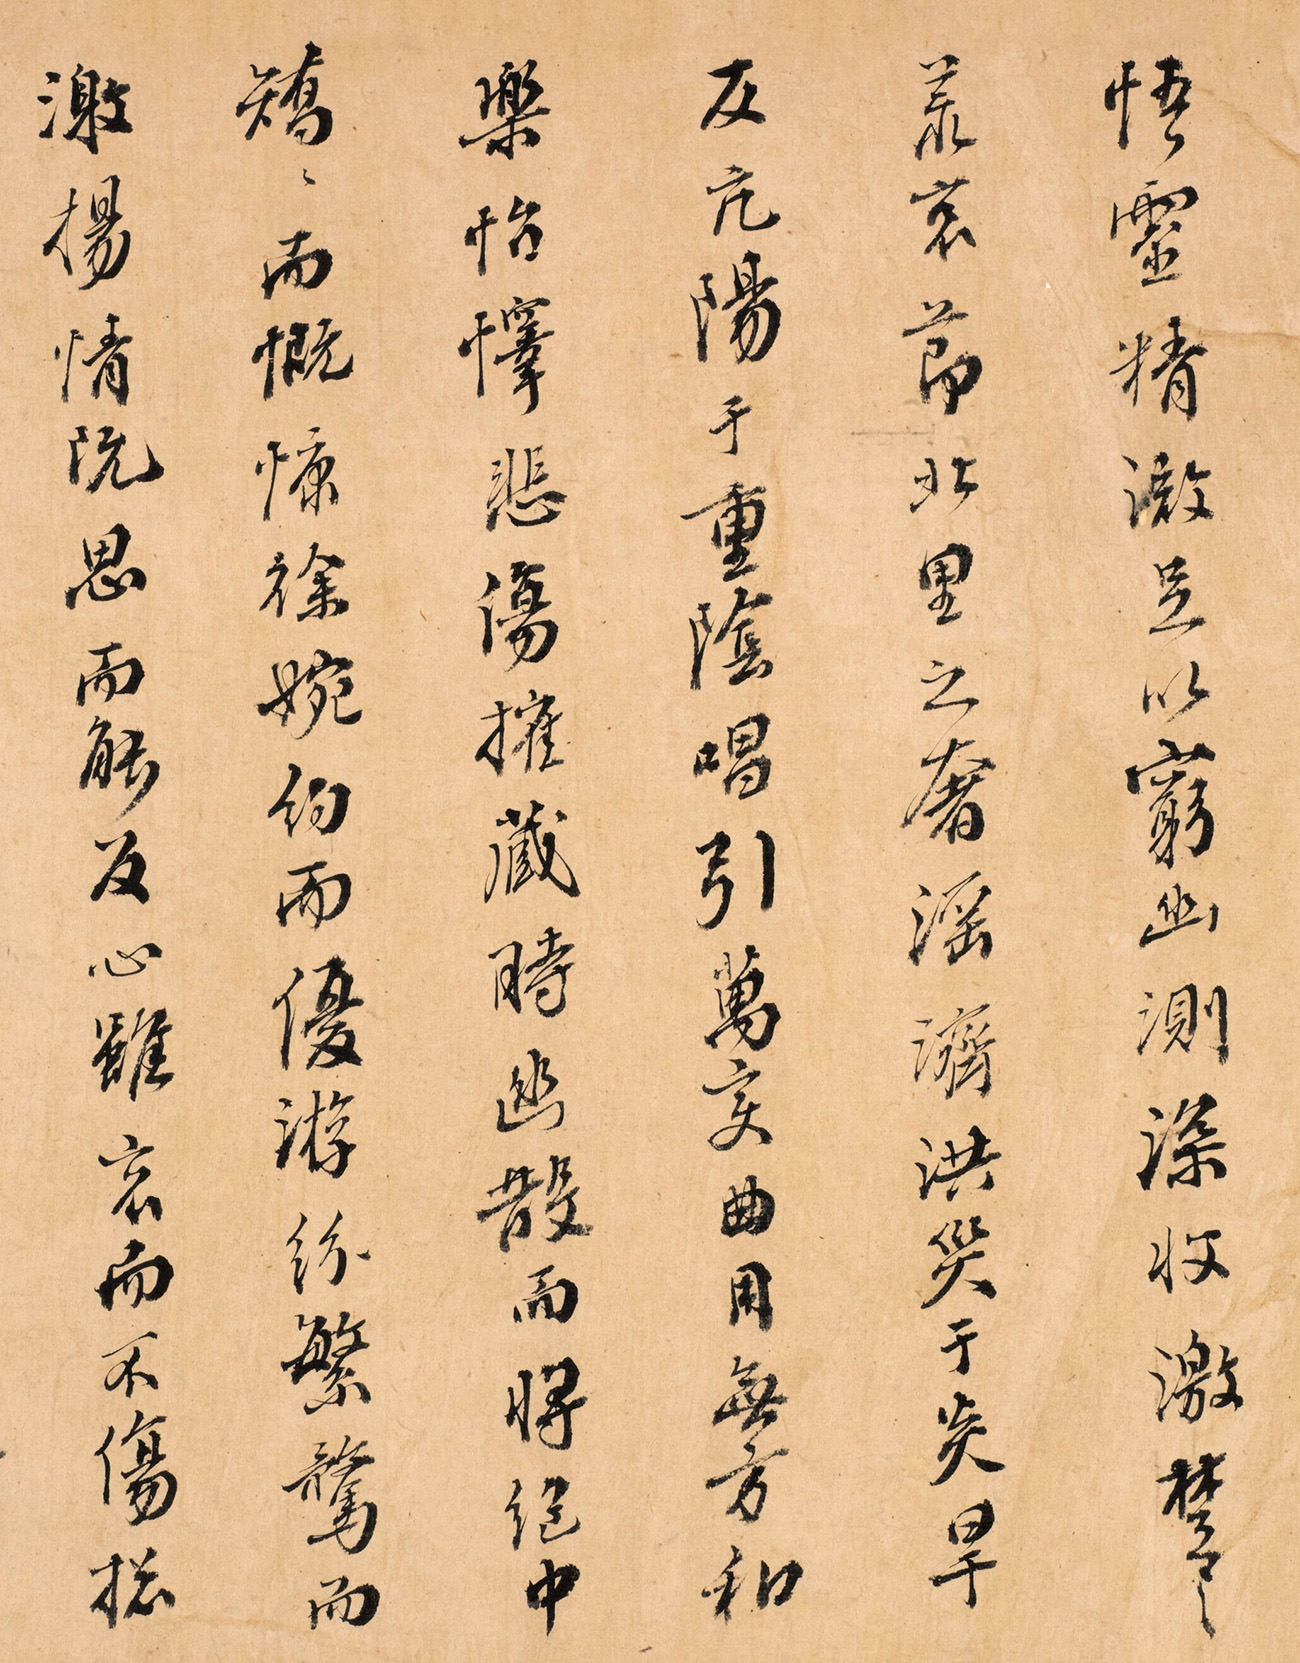 悟靈精微足以窮幽測深收激楚之
荒哀節北里之奢滛濟洪災于炎旱
反亢陽于重陰唱引萬变曲用無方和
樂怡懌悲傷摧藏時幽散而將絕中
矯〻而慨慷徐婉約而優游紛繁騖而
激揚情既思而能反心雖哀而不傷捴